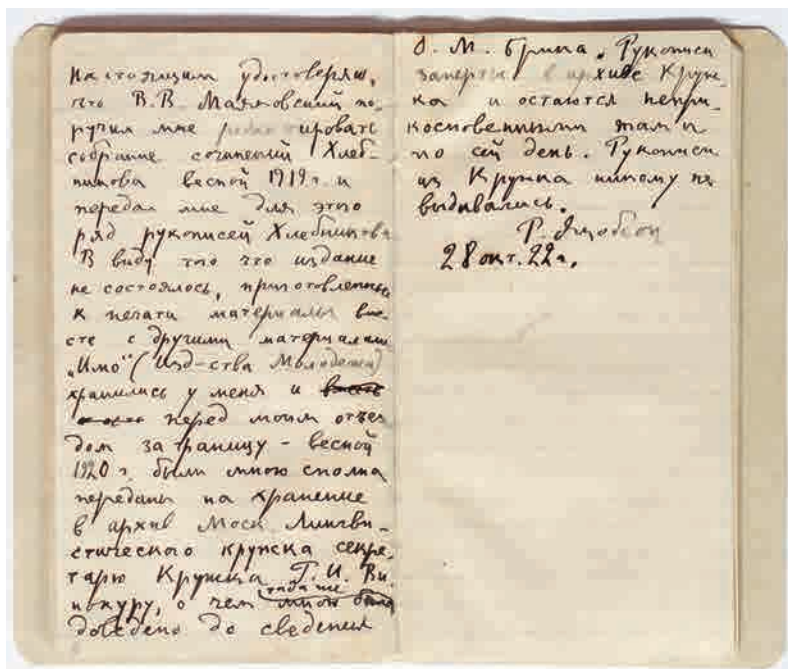 Настоящим удостоверяю,
что В.В. Маяковский по-
ручил мне редактировать
собрание сочинений Хлеб-
никова весной 1919 г. и
передал мне для этого
ряд рукописей Хлебникова
В виду того что издание
не состоялось, приготовленные
к печати материалы вме-
сте с другими материалами
„Имо“ (Изд-ства Молодежи)
хранились у меня и
перед моим отъез
дом за границу - весной
1920 г. были мною сполна
переданы на хранение
в архив Моск Лингви-
стического кружка секре-
тарю Кружка Г.И. Ви-
нокуру, о чем мною было
тогда же
доведено до сведения
О. М. Брика. Рукописи
заперты в архиве Круж-
ка и остаются непри-
косновенными там и
по сей день. Рукописи
из Кружка никому не
выдавались.
Р. Якобсон
28 окт. 22 г.